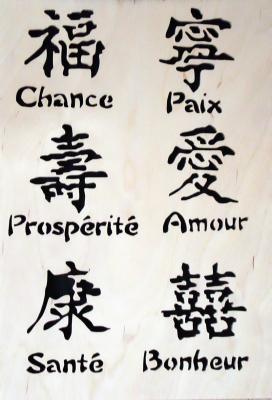 福 寧
Chance Paix
壽 愛
Prospérité Amour
康 囍
Santé Bonheur